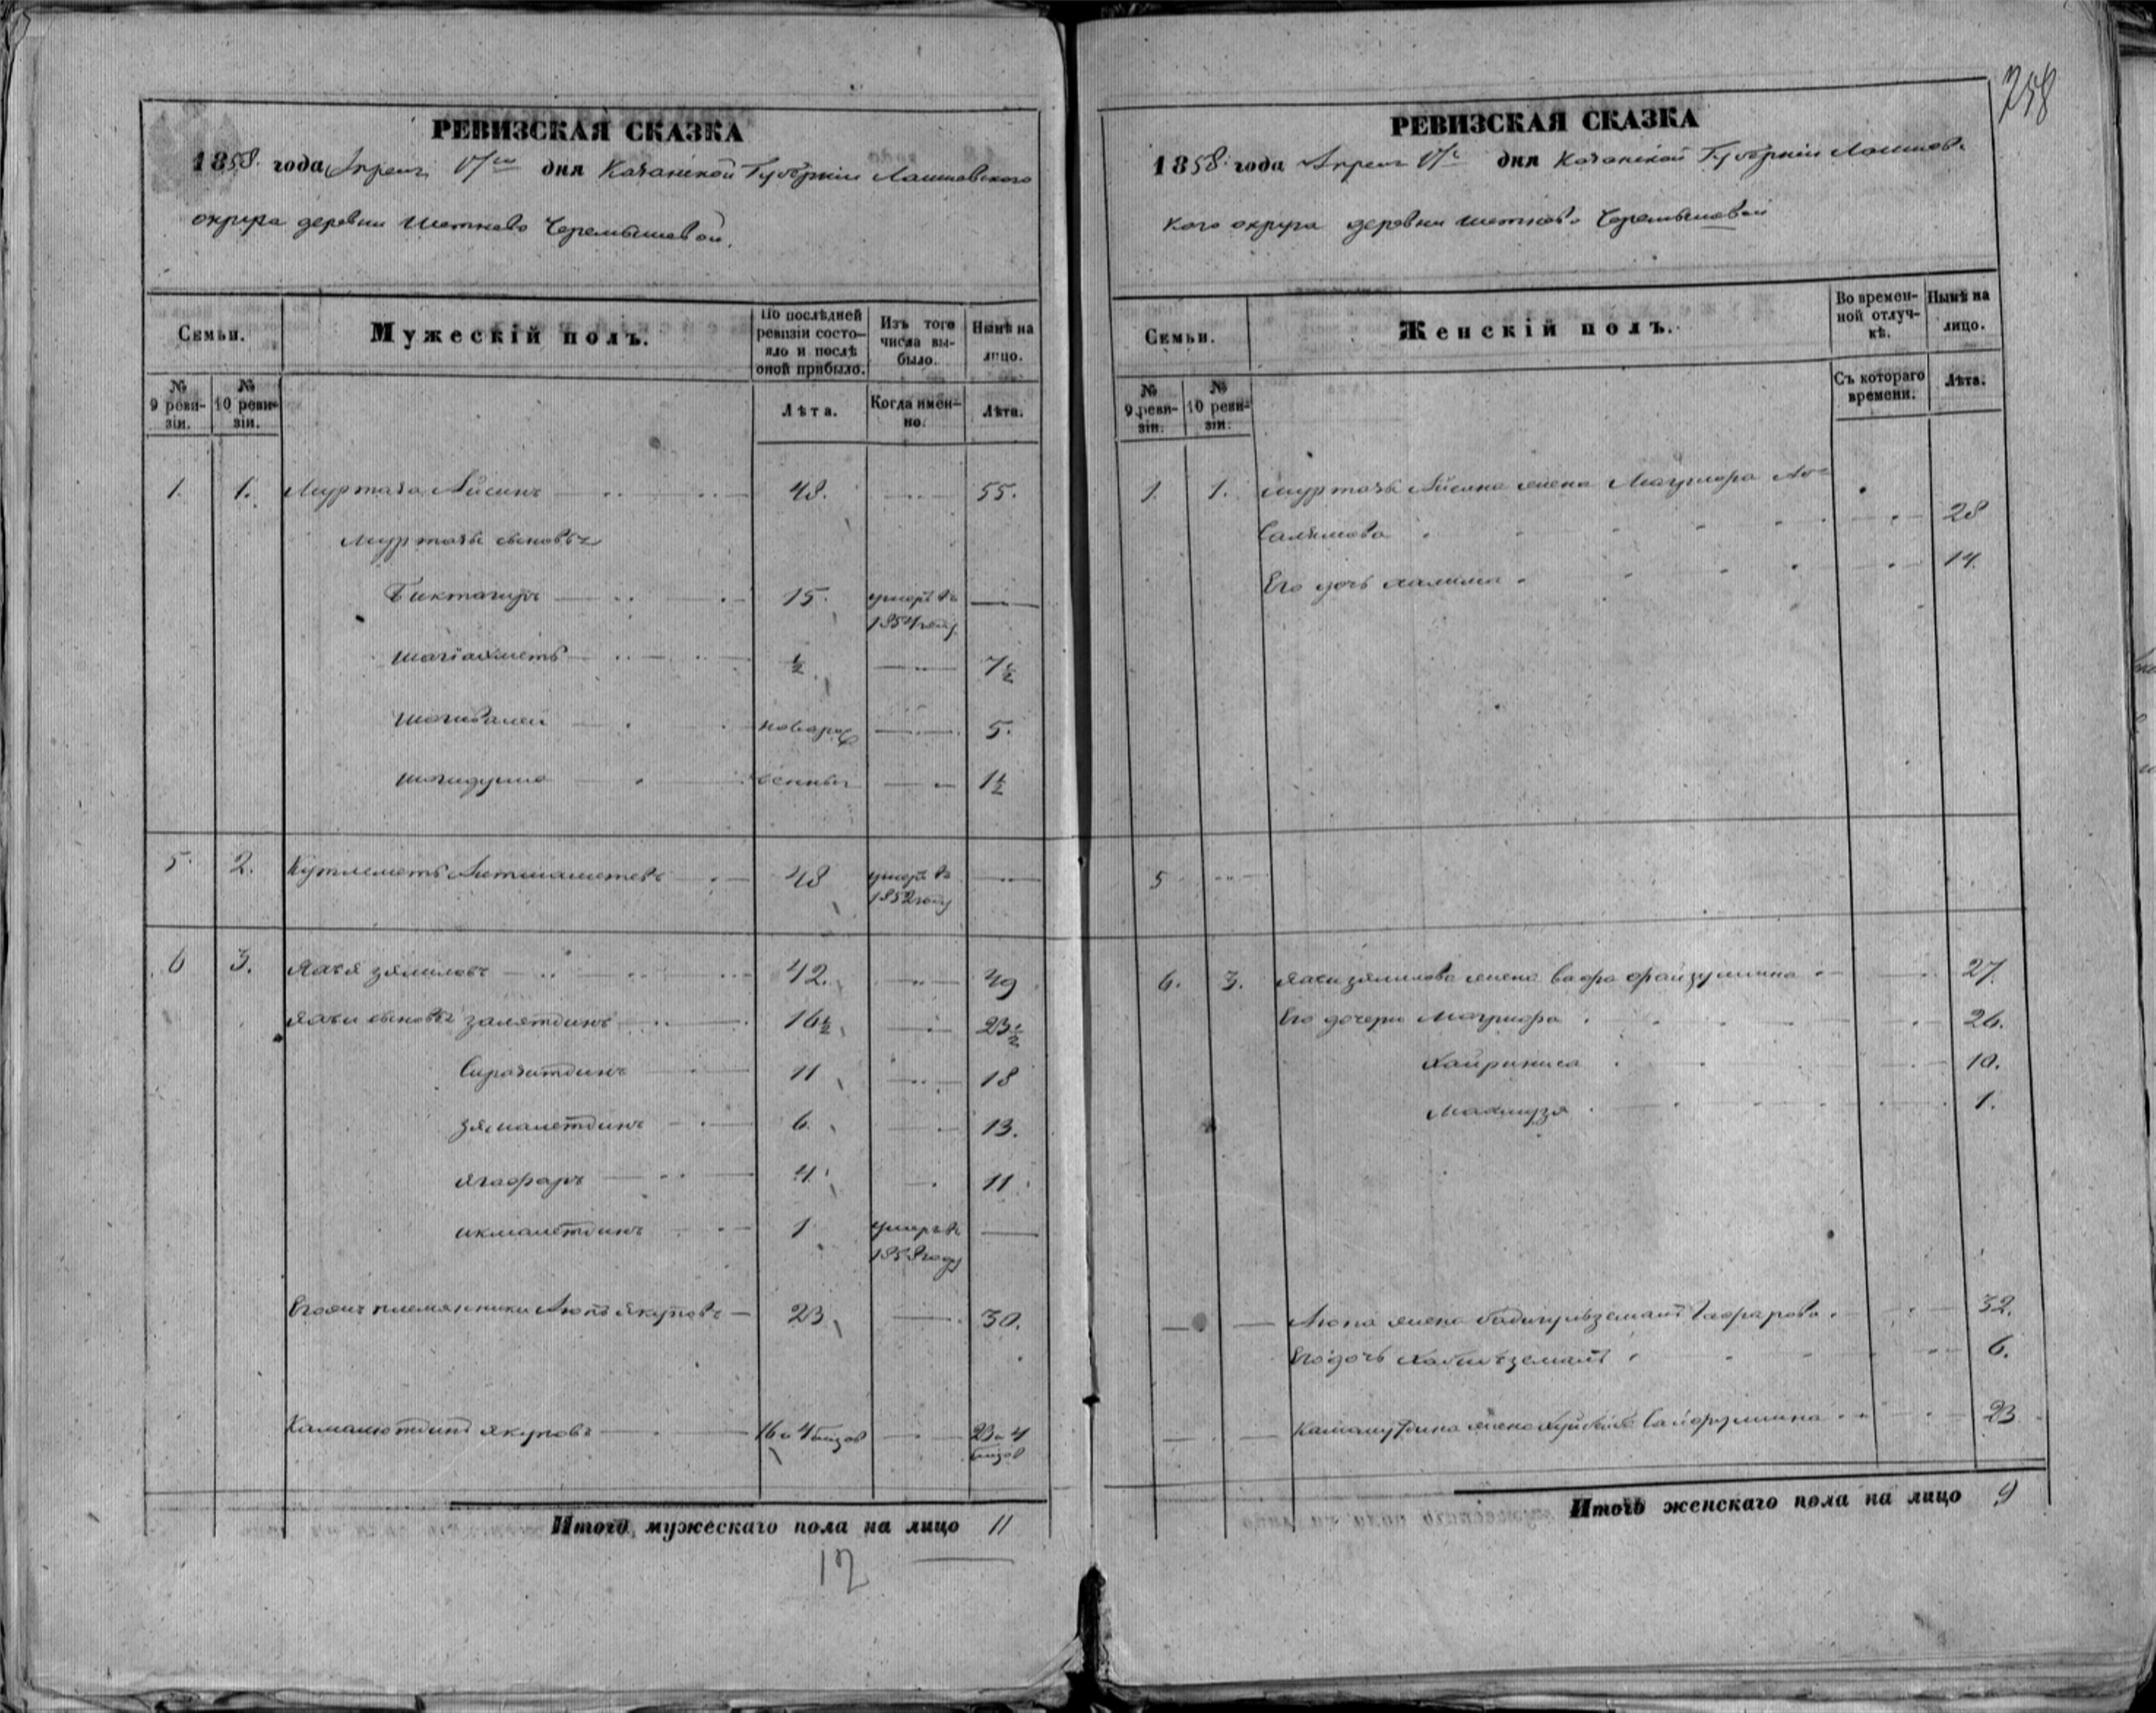 258
РЕВИЗСКАЯ СКАЗКА
1858. года Апреля 17го дня Казанской Губернiи Лаишевского
округа деревни Шетнево Черемышевой.
Семьи.
Мужескій полъ.
По послѣдней ревизіи состояло и послѣ оной прибыло.
Изъ того числа выбыло.
Нынѣ на лицо.
№ 9 ревизіи.
№ 10 ревизіи.
Лѣта.
Когда именно.
Лѣта.
1. 1. Муртаза Айсинъ 48. 55.
Муртазы сыновья
Биктагиръ 15. умеръ въ 1854 году
Шагіахметъ ½ 7½
Шагивалей новорож 5.
Шагидулла денны 1½
5. 2. Кутлеметъ 48 умеръ въ 1852 году
6 3. Яхъя Зямиловъ 42. 49
Яхъи сыновья Залятдинъ 16½ 23½
Сиразитдинъ 11 18
Зямалетдинъ 6. 13.
Ягафаръ 4. 11.
Икмалетдинъ 1 умеръ въ 1858 году
племянники Аюпъ Якуповъ 23 30.
Камалютдинъ Якуповъ 16 и 4 23 и 4
Итого мужескаго пола на лицо 11
12
РЕВИЗСКАЯ СКАЗКА
1858. года Апреля 17г дня Казанской Губернiи Лаишев-
кого округа деревни Шетнево Черемышевой
Семьи.
Женскій полъ.
Во временной отлучкѣ.
Нынѣ на лицо.
№ 9 ревизіи.
№ 10 ревизіи.
Съ котораго времени.
Лѣта.
1. 1. Муртазы Айсина жена Магуфора Аб-
Салямова 28
Его дочь Халима 14.
5
6. 3. Яхи Зямилова жена Файзуллина 27.
Его дочери Магруфора 26.
Хайриниса 10.
Махмузя 1.
Аюпа жена Гафарова 32.
Его дочь 6.
Камалутдина жена Сайфуллина 23
Итого женскаго пола на лицо 9